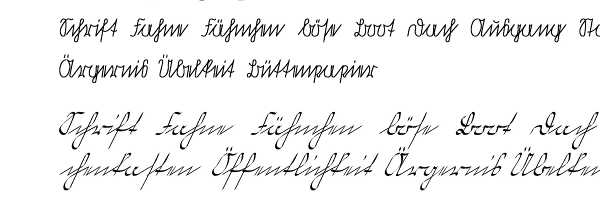 Schrift Fahne Fähnchen böse Boot Dach Ausgang
Ärgernis Übelkeit Büttenpapier
Schrift Fahne Fähnchen böse Boot Dach
chenkasten Öffentlichkeit Ärgernis